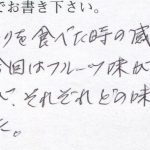 でお書き下さい。
りを食べた時の感
今回はフルーツ味が
で、それぞれどの味
た。